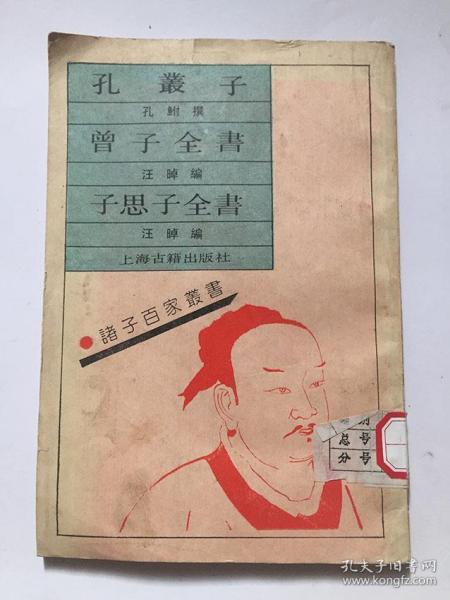 孔叢子
孔鮒撰
曾子全書
汪晫編
子思子全書
汪晫編
上海古籍出版社
諸子百家叢書
总号
分号
孔夫子旧书网
www.kongfz.com